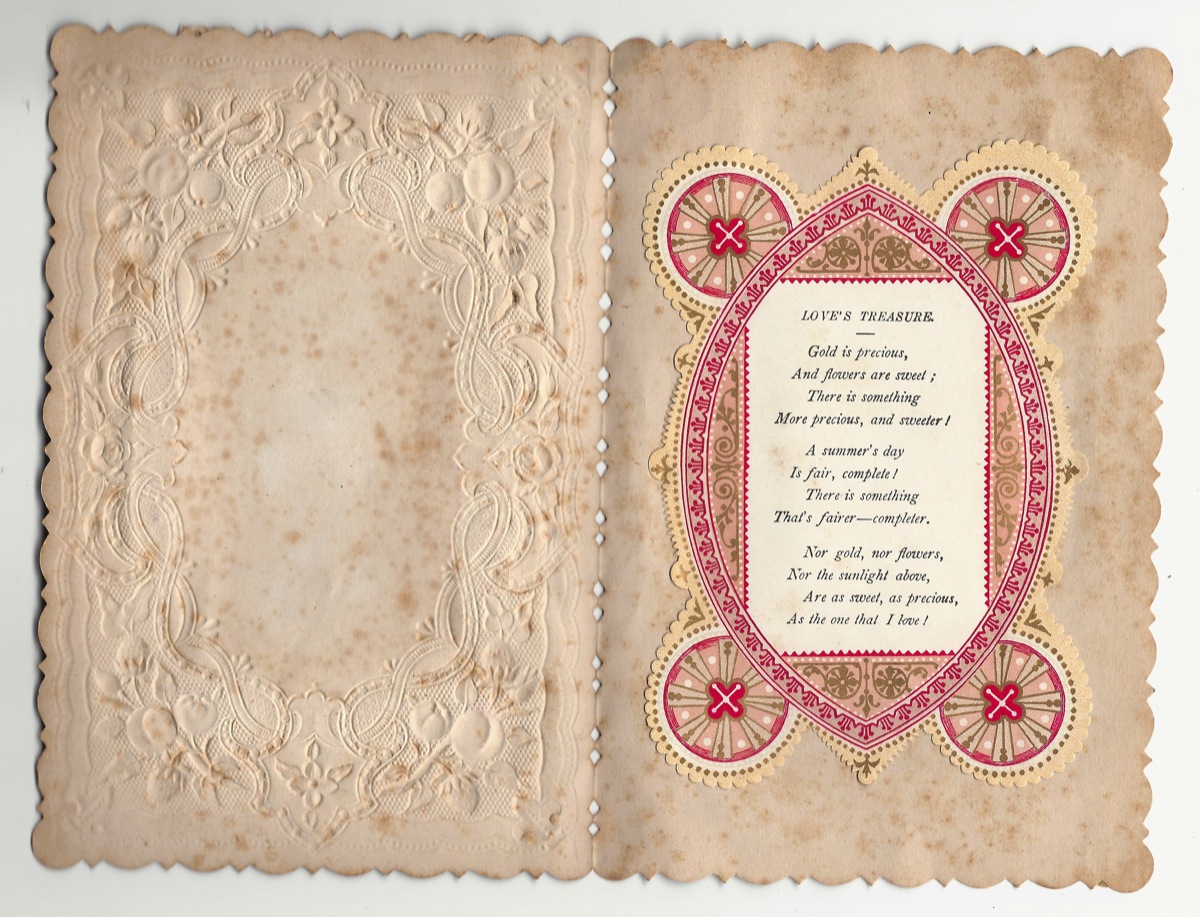 LOVE'S TREASURE.
Gold is precious,
And flowers are sweet ;
There is something
More precious, and sweeter !
A summer's day
Is fair, complete !
There is something
That's fairer—completer.
Nor gold, nor flowers,
Nor the sunlight above,
Are as sweet, as precious,
As the one that I love !